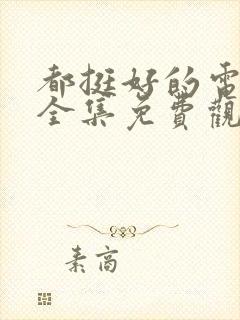 都挺好的電
全集免費觀
素高